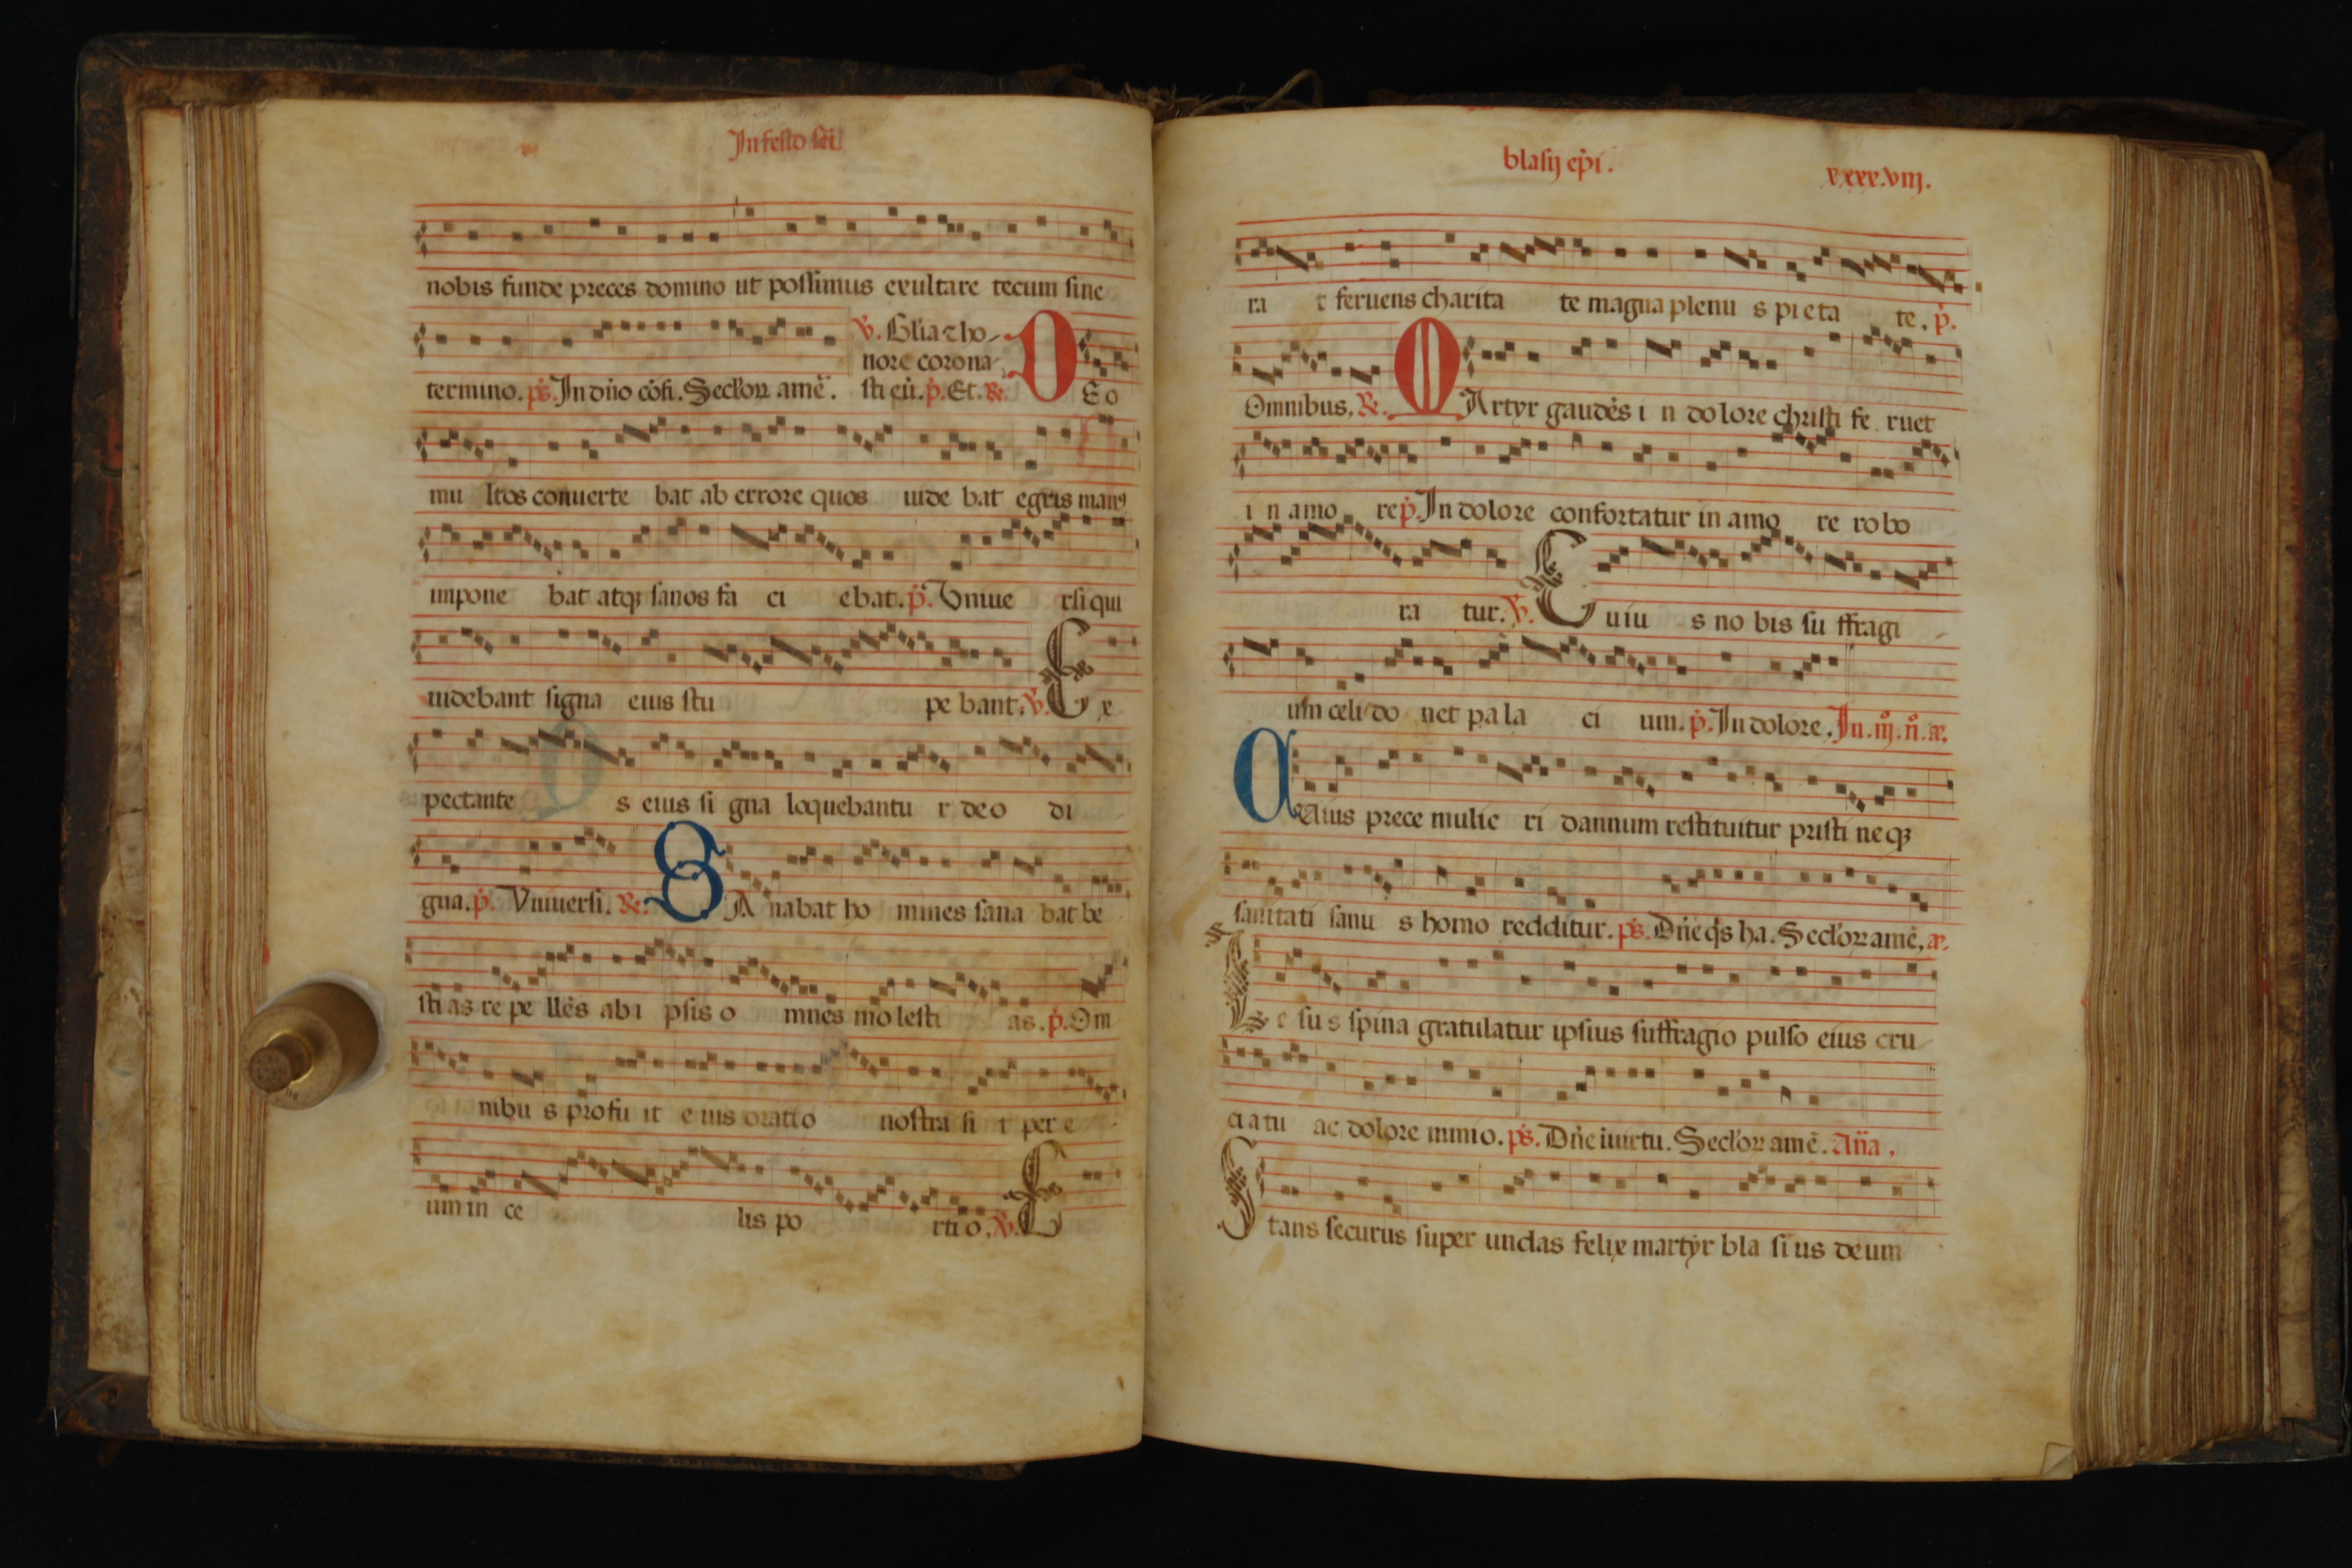 In festo sči
nobis funde preces domino ut possimus exultare tecum sine
℣. Gl̃ia ⁊ ho-
nore corona-
termino. ps̃. In dño cõfi. Sećloꝝ amẽ. sti eũ. p̃. Et. ℟. D Eo
mu ltos conuerte bat ab errore quos uide bat egris manꝰ
impone bat atqꝫ sanos fa ci ebat. p̃. Vniue rsi qui
uidebant signa eius stu pe bant. ℣. E x
pectante s eius si gna loquebantu r deo di
gna. p̃. Vniuersi. ℟. S A nabat ho mines sana bat be
sti as re pe llẽs ab i psis o mnes mo lesti as. p̃. Om
nibu s profu it e ius oratio nostra si t per e
um in ce lis po rti o. ℣. E
blasij ep̃i.
xxxx.viij.
ra t feruens charita te magna plenu s pi eta te. p̃.
Omnibus, ℟. M Artyr gaudẽs i n do lore christi fe ruet
i n amo re p̃. In dolore confortatur in amo re ro bo
ra tur. ℣. C uiu s no bis su ffragi
um celi do net pa la ci um. p̃. In dolore. In. iij. ñ. añ.
C uius prece mulie ri dannum restituitur pristi ne qꝫ
sanitati sanu s homo redditur. ps̃. Dñe qs̃ ha. Sećloꝝ amẽ, añ.
L e su s spina gratulatur ipsius suffragio pulso eius cru
ci a tu ac dolore nimio. ps̃. Dñe ĩ uirtu. Sećloꝝ amẽ. Añа.
S tans securus super undas felix martyr bla si us deum